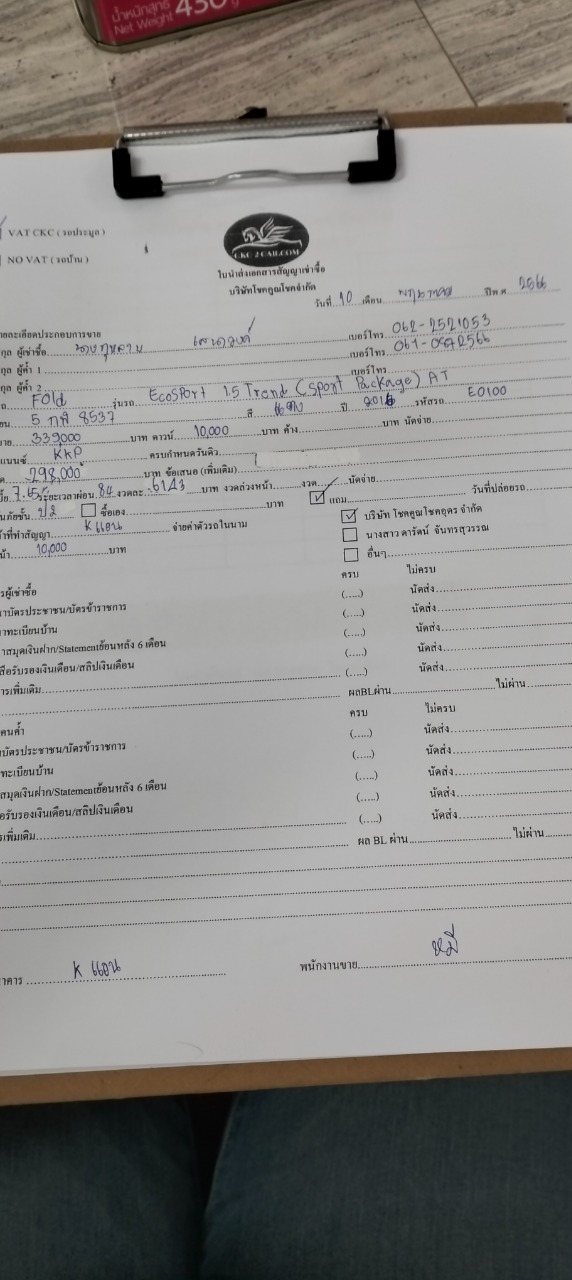 น้ำหนักสุทธิ 430 g
Net Weight
VAT CKC ( จอประมูล )
NO VAT ( จอบ้าน )
CKC 2 CAR.COM
ใบนำส่งเอกสารสัญญาเช่าซื้อ
บริษัทโชคคูณโชคจำกัด
วันที่ 10 เดือน พฤษภาคม ปีพ.ศ. 2566
ายละเอียดประกอบการขาย
กุล ผู้เช่าซื้อ เบอร์โทร 062-2521053
กุล ผู้ค้ำ 1 เบอร์โทร 061-0872566
กุล ผู้ค้ำ 2 เบอร์โทร
FOld รุ่นรถ EcoSport 1.5 Trend (Sport Package) AT
ยน 5 กฬ 8537 สี แดง ปี 2016 รหัสรถ E0100
าย 339,000 บาท ดาวน์ 10,000 บาท ค้าง บาท นัดจ่าย
แนนซ์ KKP ครบกำหนดวันดิว
298,000 บาท ข้อเสนอ (เพิ่มเติม)
ระยะเวลาผ่อน 84 งวดละ 6143 บาท งวดล่วงหน้า งวด นัดจ่าย
นภัยชั้น ป2 ซื้อเอง บาท แถม วันที่ปล่อยรถ
าที่ทำสัญญา K แอน จ่ายค่าตัวรถในนาม บริษัท โชคคูณโชคอุดร จำกัด
น้า 10,000 บาท นางสาวดารัตน์ จันทรสุวรรณ
อื่นๆ
รผู้เช่าซื้อ ครบ ไม่ครบ
าบัตรประชาชน/บัตรข้าราชการ (.....) นัดส่ง
าทะเบียนบ้าน (.....) นัดส่ง
าสมุดเงินฝาก/Statementย้อนหลัง 6 เดือน (.....) นัดส่ง
สือรับรองเงินเดือน/สลิปเงินเดือน (.....) นัดส่ง
ารเพิ่มเติม (.....) นัดส่ง
ผลBLผ่าน ไม่ผ่าน
คนค้ำ ครบ ไม่ครบ
บัตรประชาชน/บัตรข้าราชการ (.....) นัดส่ง
ทะเบียนบ้าน (.....) นัดส่ง
สมุดเงินฝาก/Statementย้อนหลัง 6 เดือน (.....) นัดส่ง
อรับรองเงินเดือน/สลิปเงินเดือน (.....) นัดส่ง
รเพิ่มเติม (.....) นัดส่ง
ผล BL ผ่าน ไม่ผ่าน
าคาร K แอน พนักงานขาย หมี